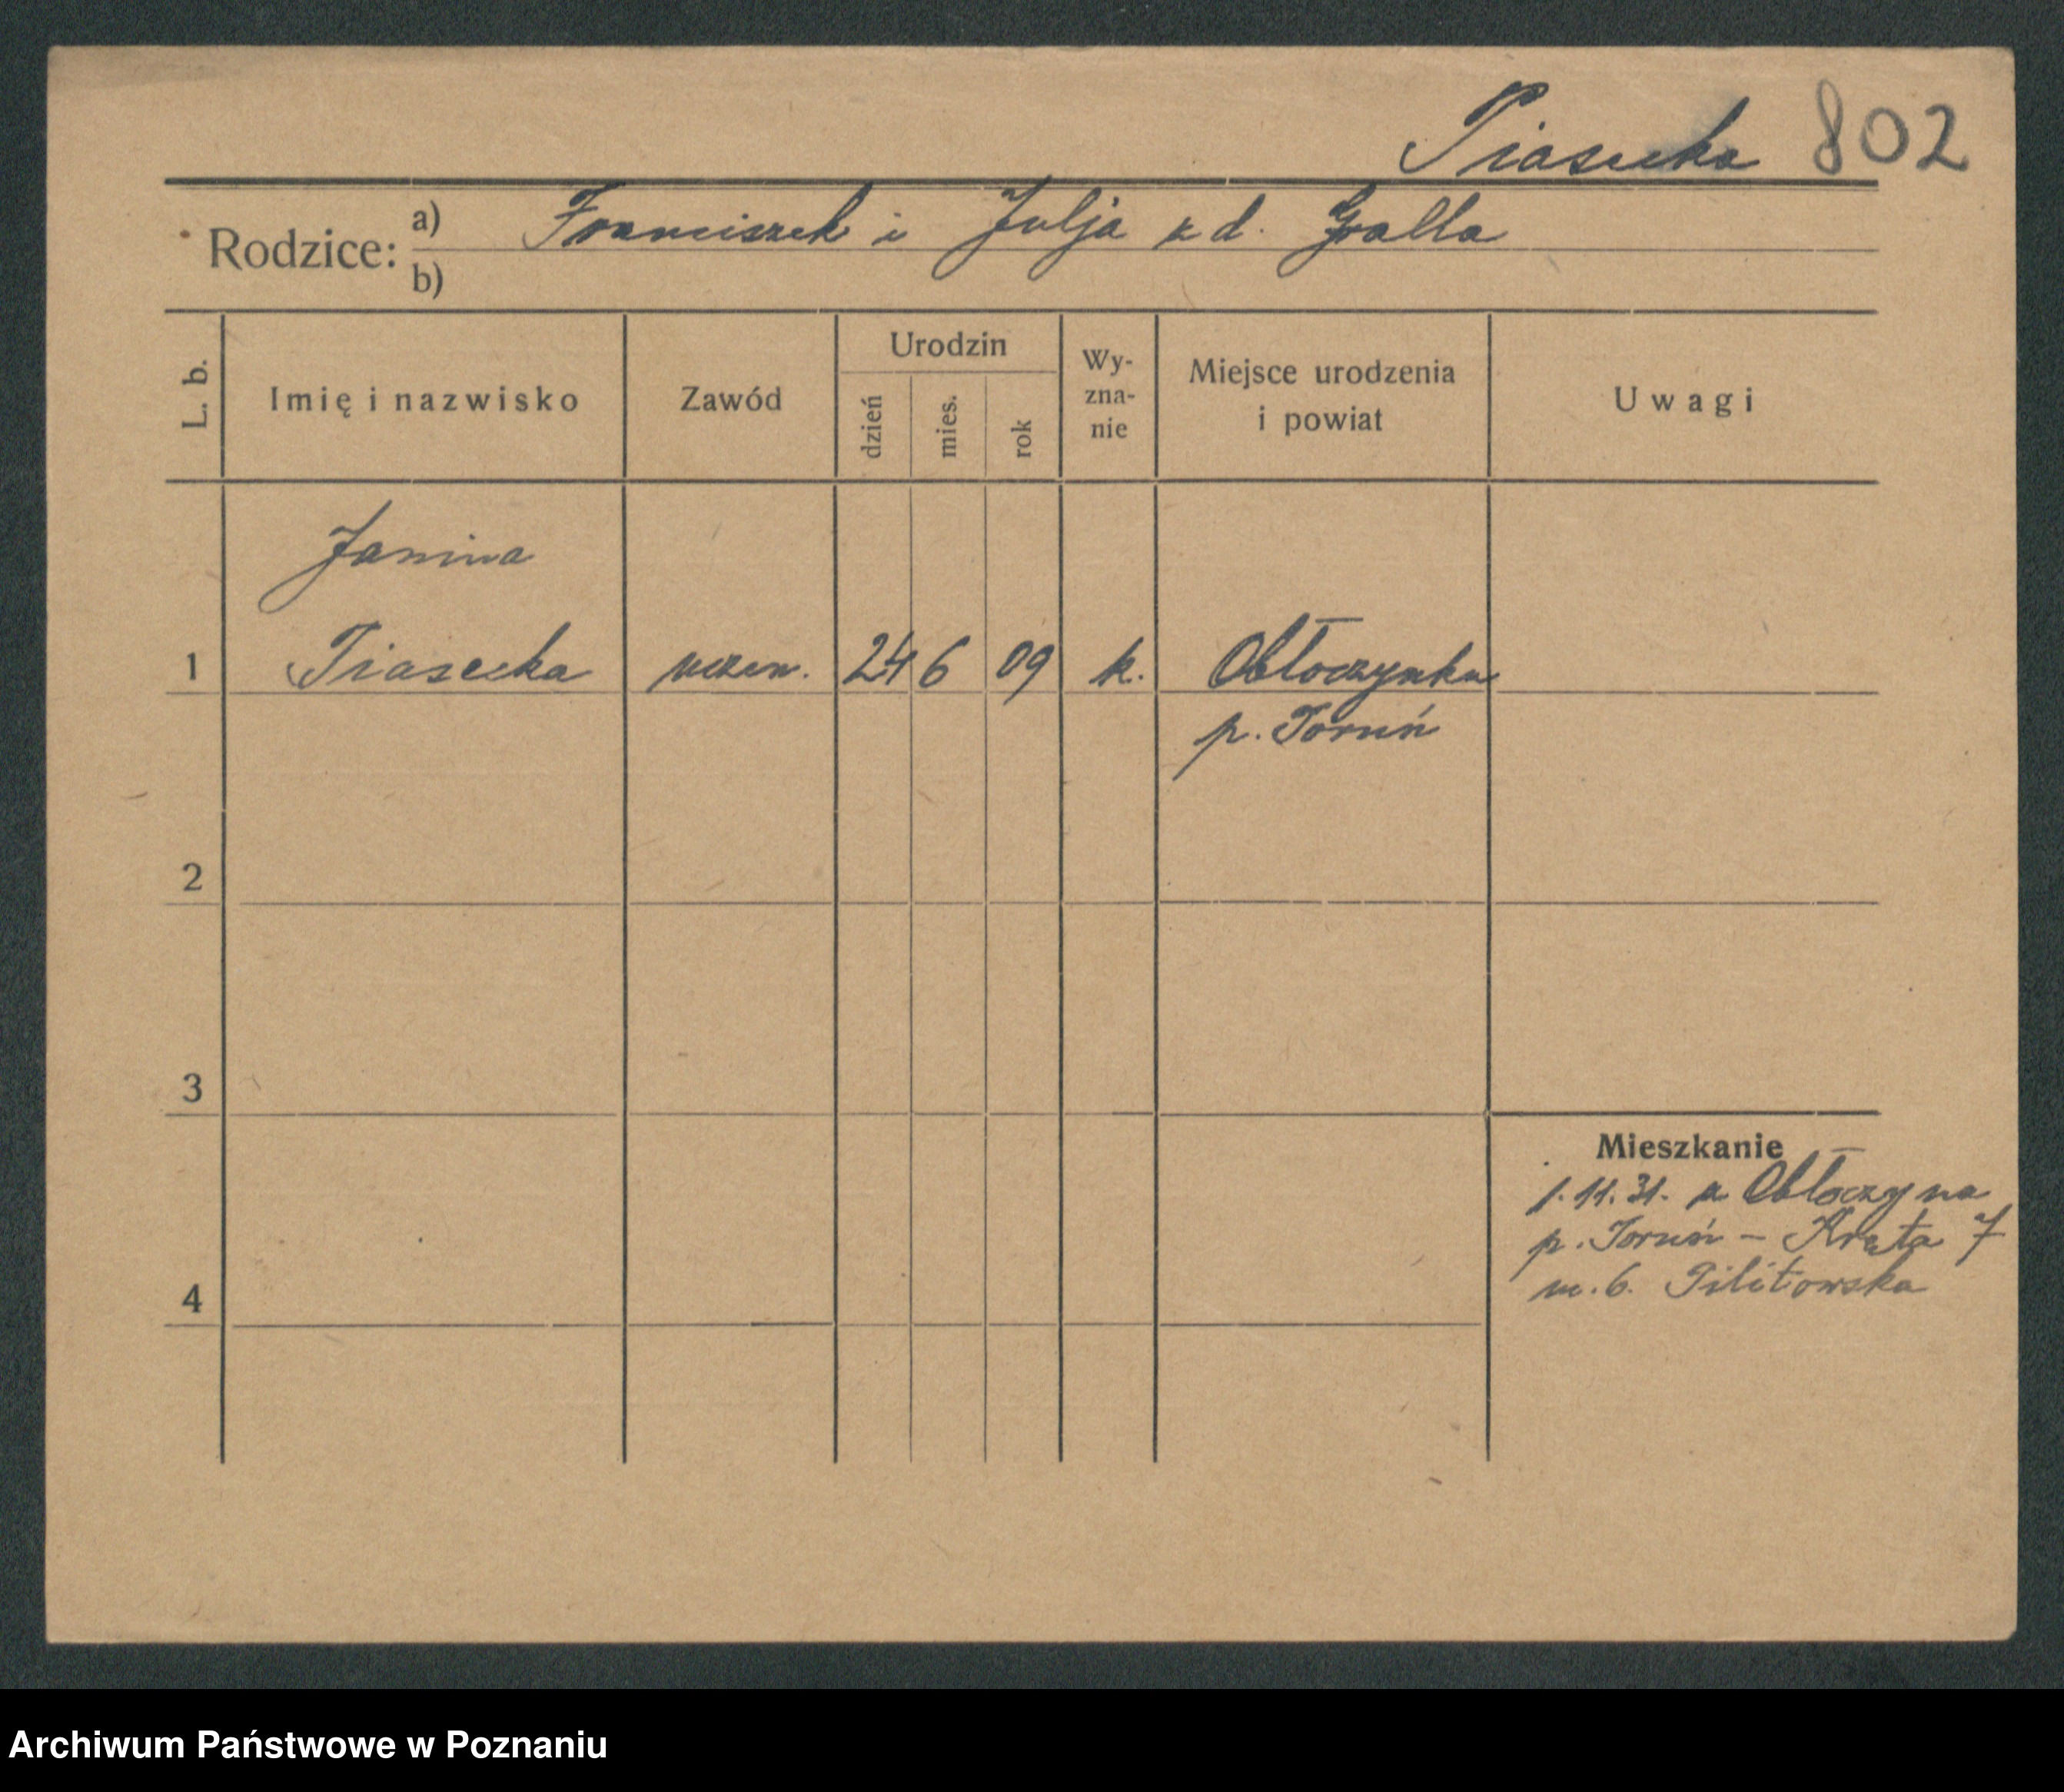 Piasecka 802
Rodzice: a) Franciszek i Julja z d. Gralla
b)
L. b.
Imię i nazwisko
Zawód
Urodzin
dzień
mies.
rok
Wy-
zna-
nie
Miejsce urodzenia
i powiat
Uwagi
Janina
1 Piasecka uczen. 24 6 09 k. Obłoczynku
p. Toruń
2
3
4
Mieszkanie
1.11.31. z Obłoczyna
p. Toruń – Kręta 7
m. 6. Pilitowska
Archiwum Państwowe w Poznaniu